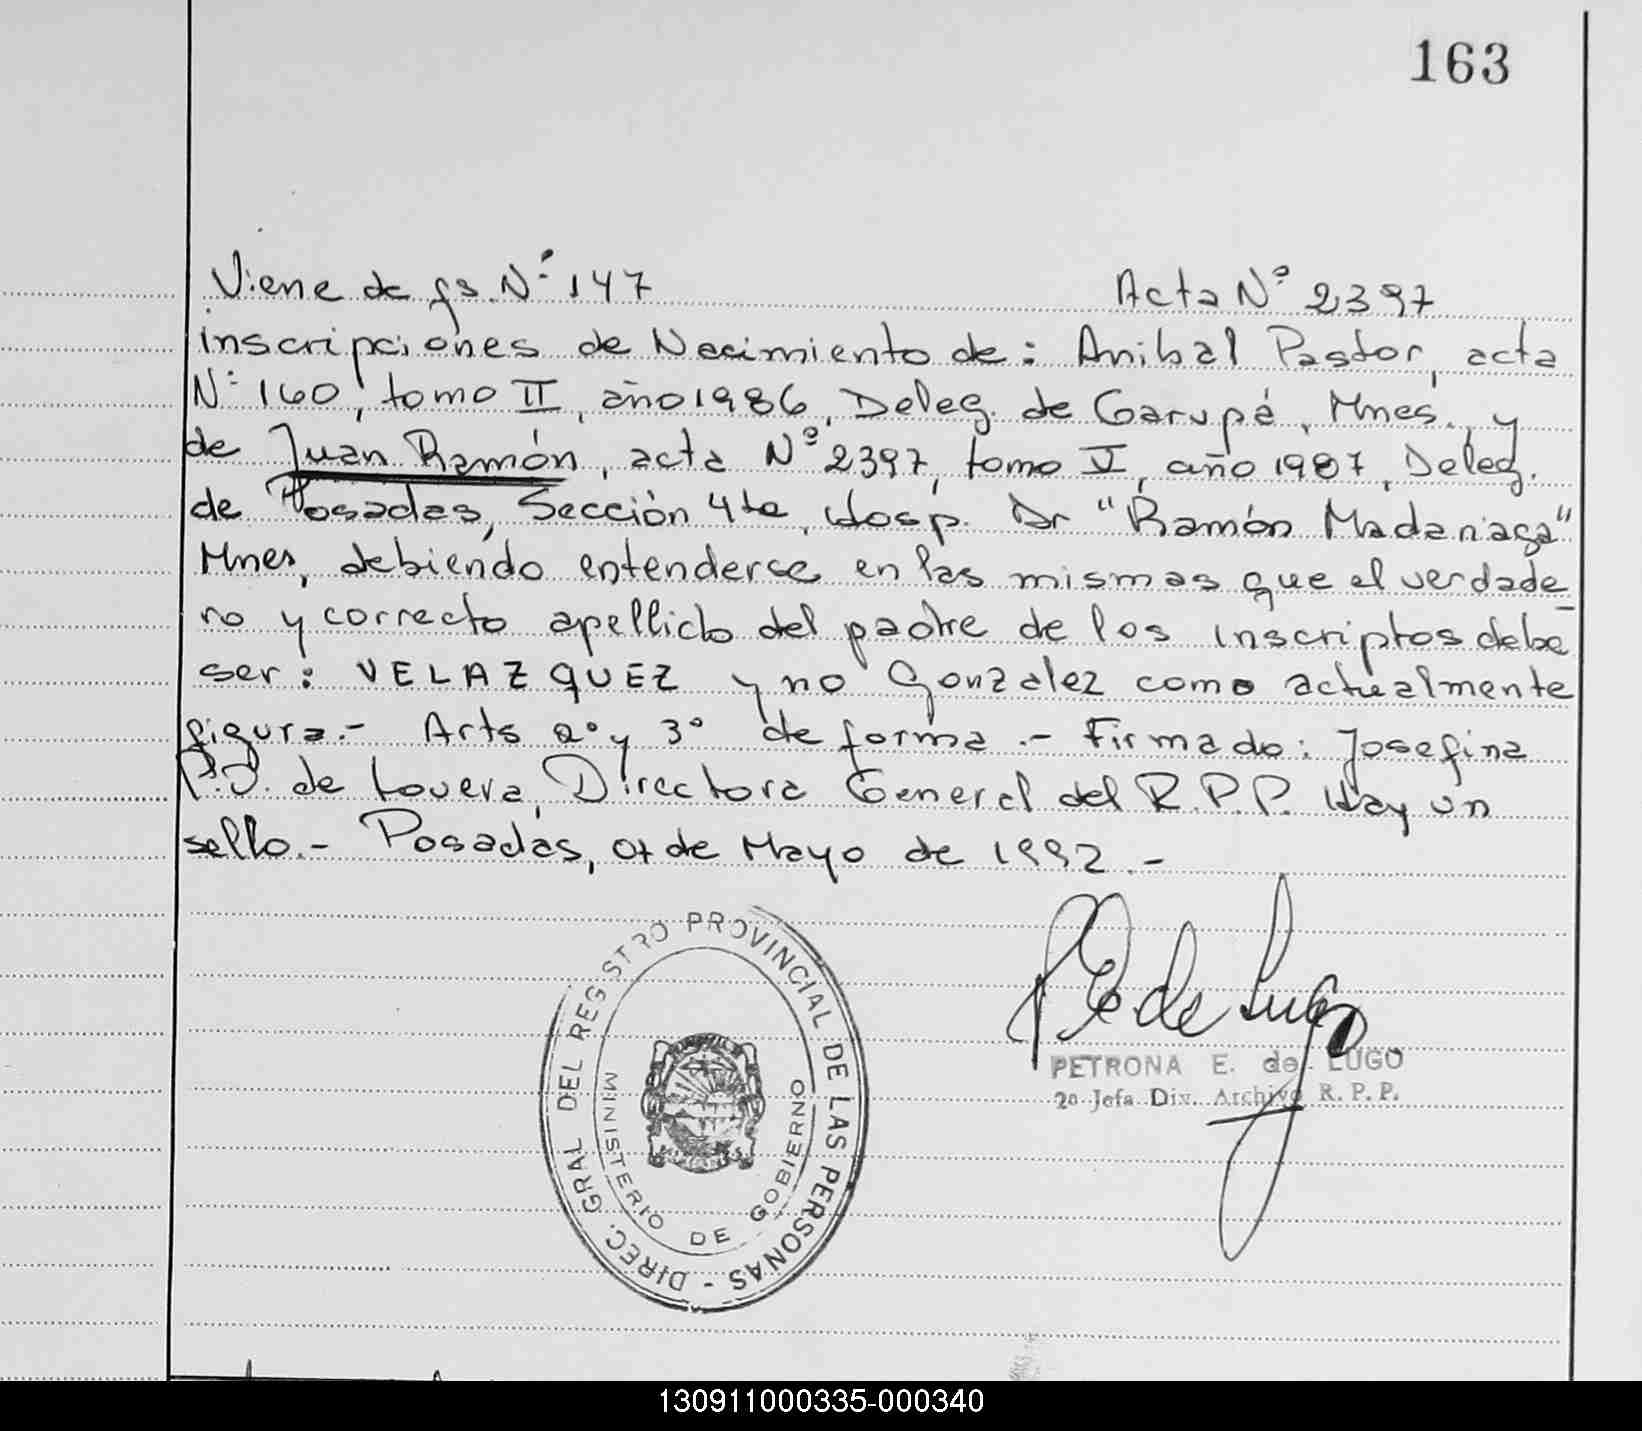 163
Viene de fs. Nº 147 Acta Nº 2397
inscripciones de Nacimiento de: Anibal Pastor, acta
Nº 160, tomo II, año 1986, Deleg. de Garupá, Mnes., y
de Juan Ramón, acta Nº 2397, tomo V, año 1987, Deleg.
de Posadas, Sección 4ta, Hosp. Dr "Ramón Madariaga"
Mnes, debiendo entenderse en las mismas que el verdade_
ro y correcto apellido del padre de los inscriptos debe
ser: VELAZQUEZ y no Gonzalez como actualmente
figura.- Arts 2º y 3º de forma.- Firmado: Josefina
de Lovera, Directora General del R.P.P. Hay un
sello.- Posadas, 07 de Mayo de 1992.-
DIREC. GRAL DEL REGISTRO PROVINCIAL DE LAS PERSONAS -
MINISTERIO DE GOBIERNO
PE de Lugo
PETRONA E. de LUGO
2a Jefa Div. Archivo R. P. P.
130911000335-000340